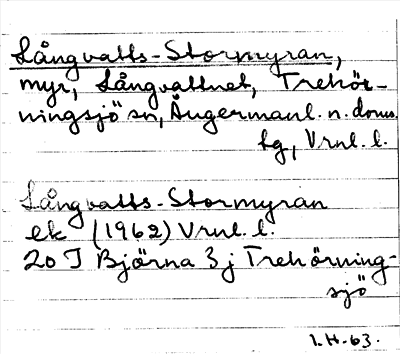 Långvatts-Stormyran,
myr, Långvattnet, Trehör-
ningsjö sn, Ångermanl. n. doms.
bg, Vrnl. l.
Långvatts-Stormyran
ek (1962) Vrnl. l.
20 I Björna 3 j Trehörning-
sjö
1.H-63.